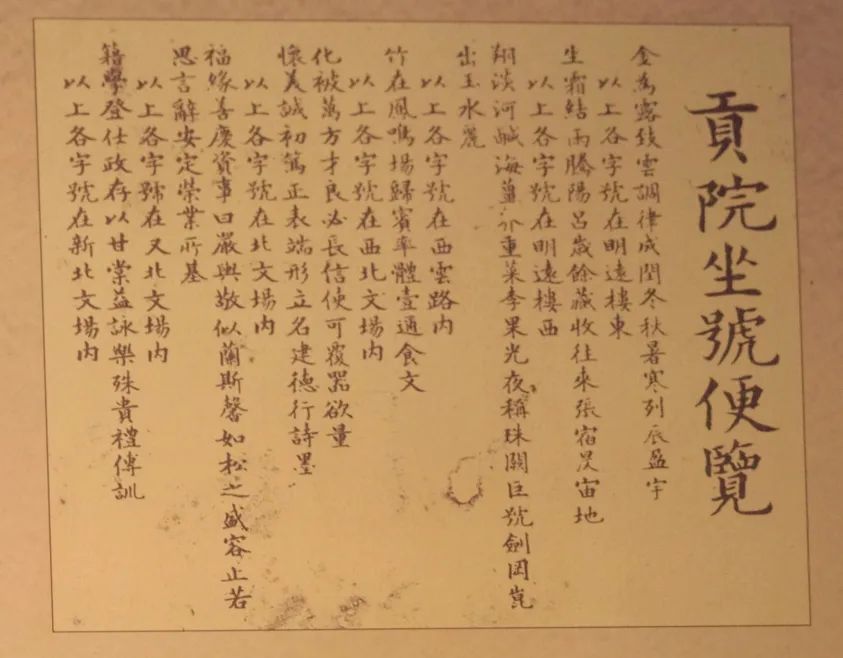 貢院坐號便覽
金為露致雲調律成閏冬秋暑寒列辰盈宇
以上各字號在明遠樓東
生霜結雨騰陽呂歲餘藏收往來張宿昃宙地
以上各字號在明遠樓西
翔淡河鹹海薑介重菜李果光夜稱珠闕巨號劍岡崑
出玉水麗
以上各字號在西雲路内
竹在鳳鳴場歸賓率體壹通食文
以上各字號在西北文場内
化被萬方才良必長信使可覆器欲量
懷美誠初篤正表端形立名建德行詩墨
以上各字號在北文場内
福緣善慶資事曰嚴與敬似蘭斯馨如松之盛容止若
思言辭安定榮業所基
以上各字號在又北文場内
籍學登仕政存以甘棠益詠樂殊貴禮傅訓
以上各字號在新北文場内